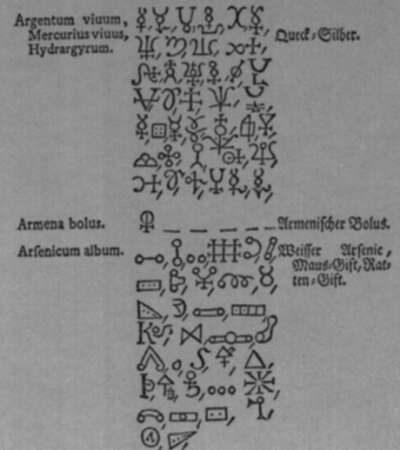 Argentum viuum,
Mercurius viuus,
Hydrargyrum.
Queck-Silber.
Armena bolus.
Armenischer Bolus.
Arſenicum album.
Weiſſer Arſenic,
Maus-Gift, Rat-
ten-Gift.